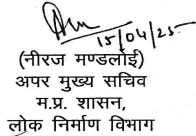 15/04/25
(नीरज मण्डलोई)
अपर मुख्य सचिव
म.प्र. शासन,
लोक निर्माण विभाग